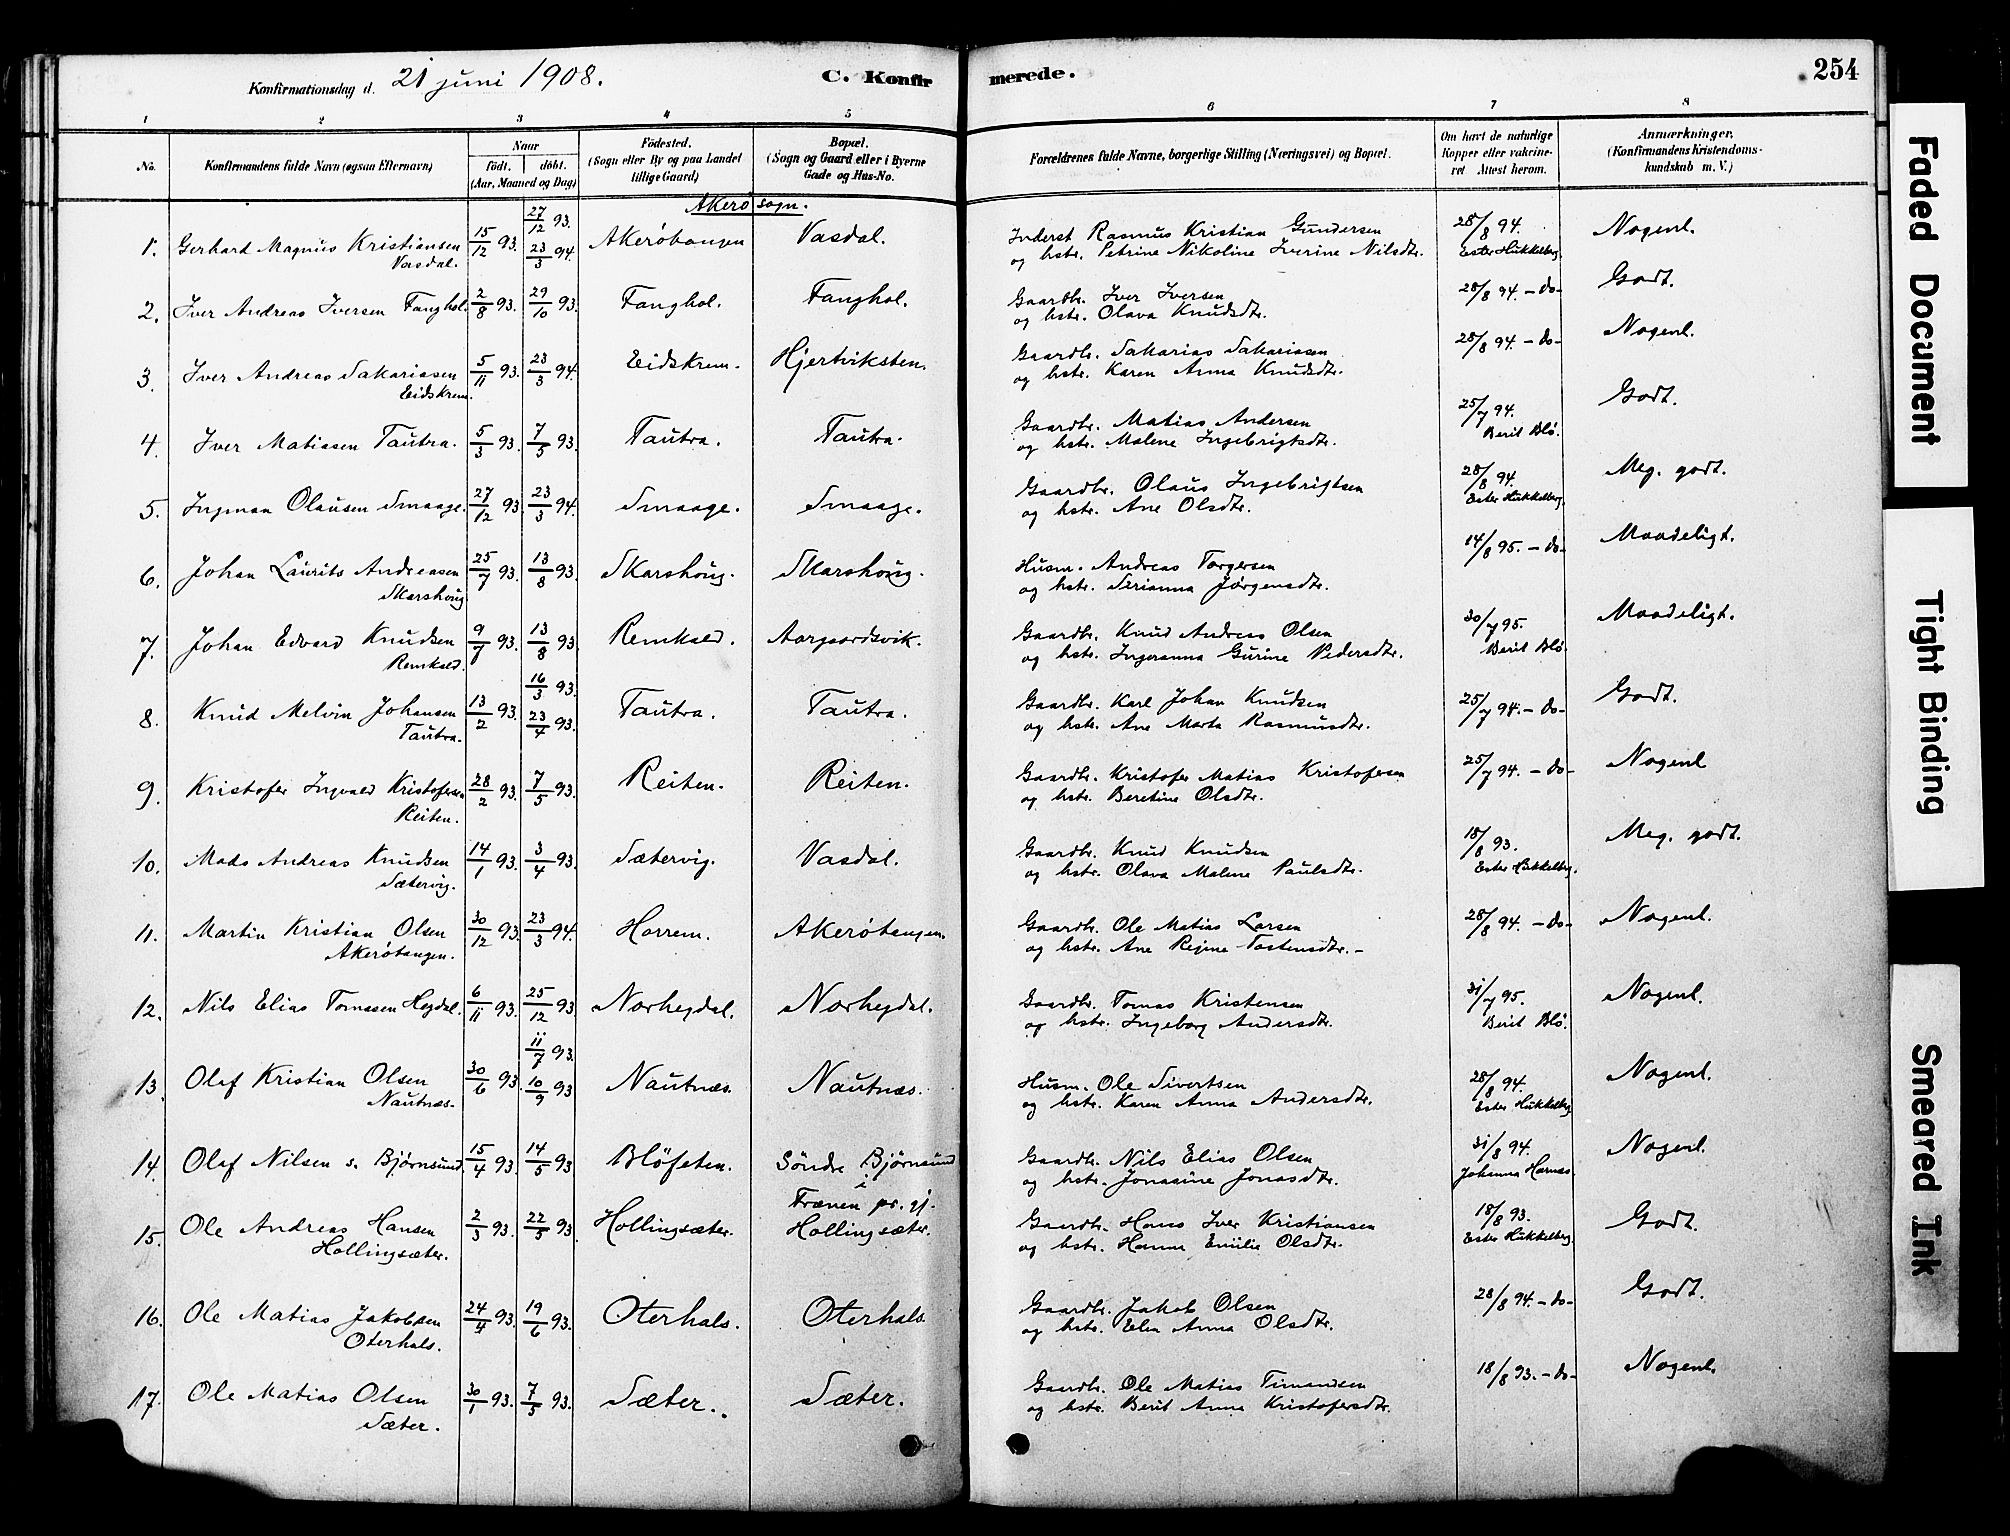 Konfirmationsdag d. 21 juni 1908.
C. Konfirmerede.
254
1 2 3 4 5 6 7 8
No.
Konfirmandens fulde Navn (ogsaa Efternavn)
Naar
födt. döbt.
(Aar, Maaned og Dag)
Födested.
(Sogn eller By og paa Landet
tillige Gaard)
Bopæl.
(Sogn og Gaard eller i Byerne
Gade og Hus-No.
Forældrenes fulde Navne, borgerlige Stilling (Næringsvei) og Bopæl.
Om havt de naturlige
Kopper eller vakcine-
ret. Attest herom.
Anmærkninger.
(Konfirmandens Kristendoms-
kundskab m. V.)
Akerö sogn.
1. Gerhard Magnus Kristiansen 15/12 93. 27/12 93. Akerötangen Vasdal. Inderst Rasmus Kristian Gundersen 28/8 94. Nogenl.
Vasdal. 23/3 94. og hstr. Petrine Nikoline Iverine Nilsdtr. Ester Hukkelberg.
2. Iver Andreas Iversen Fanghol. 2/8 93. 29/10 93. Fanghol. Fanghol. Gaardbr. Iver Iversen 28/8 94. -do- Godt.
og hstr. Olava Knudsdtr.
3. Iver Andreas Sakariasen 5/11 93. 23/3 94. Eidskrem. Hjertviksten. Gaardbr. Sakarias Sakariasen 28/8 94 -do- Nogenl.
Eidskrem. og hstr. Karen Anna Knudsdtr.
4. Iver Matiasen Tautra. 5/3 93. 7/5 93. Tautra. Tautra. Gaardbr. Matias Andersen 25/7 94. Godt.
og hstr. Malene Ingebrigtsdtr. Berit Blö.
5. Ingman Olausen Smaage. 27/12 93. 23/3 94. Smaage. Smaage. Gaardbr. Olaus Ingebrigtsen 28/8 94. Meg. godt.
og hstr. Ane Olsdtr. Ester Hukkelberg.
6. Johan Laurits Andreasen 25/7 93. 13/8 93. Skarshoug. Skarshoug. Husm. Andreas Torgersen 14/8 95. -do- Maadeligt.
Skarshoug. og hstr. Serianna Jörgensdtr.
7. Johan Edvard Knudsen 9/7 93. 13/8 93. Remkeld. Aargaardsvik. Gaardbr. Knud Andreas Olsen 30/7 95. Maadeligt.
Remkeld. og hstr. Ingeranna Gurine Pedersdtr. Berit Blö.
8. Knud Melvin Johansen 13/2 93. 16/3 93. Tautra. Tautra. Gaardbr. Karl Johan Knudsen 25/7 94. -do- Godt.
Tautra. 23/4 93. og hstr. Ane Marta Rasmusdtr.
9. Kristofer Ingvald Kristofersen 28/2 93. 7/5 93. Reiten. Reiten. Gaardbr. Kristofer Matias Kristofersen 25/7 94. -do- Nogenl
Reiten. og hstr. Beretine Olsdtr.
10. Mads Andreas Knudsen 14/1 93. 3/4 93. Sætervig. Vasdal. Gaardbr. Knud Knudsen 18/8 93. Meg. godt.
Sætervig. og hstr. Olava Malene Paulsdtr. Ester Hukkelberg.
11. Martin Kristian Olsen 30/12 93. 23/3 94. Horrem. Akerötangen. Gaardbr. Ole Matias Larsen 28/8 94. -do- Nogenl.
Akerötangen. og hstr. Ane Rejine Tostensdtr. -
12. Nils Elias Tomassen Heydal. 6/11 93. 25/12 93 Norheydal. Norheydal. Gaardbr. Tomas Kristensen 31/7 95. Nogenl.
og hstr. Ingeborg Andersdtr. Berit Blö.
13. Olaf Kristian Olsen 30/6 93 11/7 93. Nautnæs. Nautnæs. Husm. Ole Sivertsen 28/8 94. Nogenl.
Nautnæs. 10/9 93 og hstr. Karen Anna Andersdtr. Ester Hukkelberg
14. Olaf Nilsen s. Björnsund. 15/4 93. 14/5 93 Blöfeten. Söndre Björnsund Gaardbr. Nils Elias Olsen 31/8 94. Nogenl.
i Frænen pr. gj. og hstr. Jonasine Jonasdtr. Johanna Harnæs.
15. Ole Andreas Hansen 2/3 93. 22/5 93. Hollingsæter. Hollingsæter. Gaardbr. Hans Iver Kristiansen 18/8 93. Godt.
Hollingsæter. og hstr. Hanna Emilie Olsdtr. Ester Hukkelberg.
16. Ole Matias Jakobsen 24/4 93. 19/6 93. Oterhals. Oterhals. Gaardbr. Jakob Olsen 28/8 94. -do- Godt.
Oterhals. og hstr. Elen Anna Olsdtr.
17. Ole Matias Olsen 30/1 93. 7/5 93. Sæter. Sæter. Gaardbr. Ole Matias Timandsen 18/8 93. -do- Nogenl.
Sæter. og hstr. Berit Anna Kristofersdtr.
Faded Document
Tight Binding
Smeared Ink